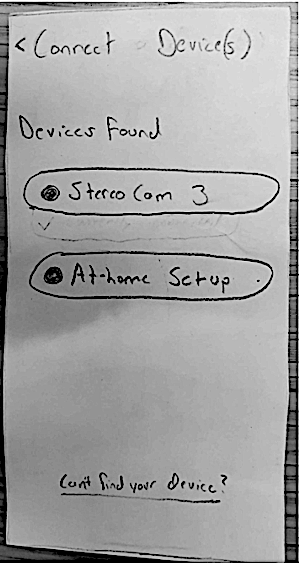 < Connect Device(s)
Devices Found
Stereo Cam 3
At-home Setup
Can't find your device?